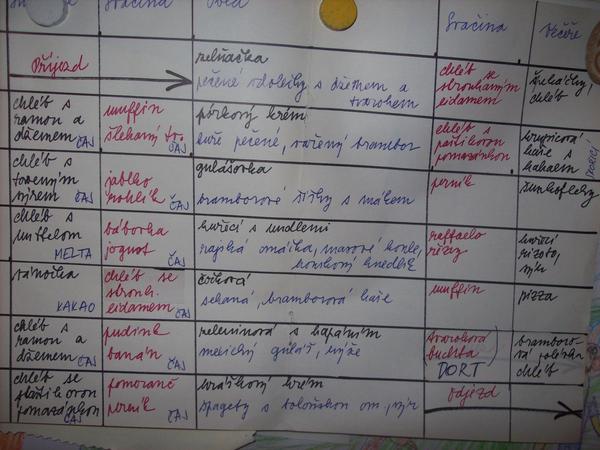 Svačina
Oběd
Svačina
Večeře
Příjezd
zelňačka
pečené vdolečky s džemem a
tvarohem
chléb se
strouhaným
eidamem
chléb
chléb s
ramou a
džemem ČAJ
muffin
šlehaný tvo.
ČAJ
pórkový krém
kuře pečené, vařený brambor
chléb s
paštikovou
pomazánkou
krupicová
kaše s
kakaem
chléb s
taveným
sýrem ČAJ
jablko
rohlík ČAJ
gulášovka
bramborové šišky s mákem
perník
žunkofleky
chléb s
MELTA
bábovka
jogurt ČAJ
kuřecí s nudlemi
rajská omáčka, masové koule,
houskový knedlík
raffaelo
řezy
kuřecí
rizoto,
sýr
vánočka
KAKAO
chléb se
strouh.
eidamem ČAJ
čočková
sekaná, bramborová kaše
muffin
pizza
chléb s
ramou a
džemem ČAJ
pudink
banán ČAJ
zeleninová s kapáním
mexický guláš, rýže
tvarohová
buchta
DORT
bramboro-
vá polévka
chléb
chléb se
paštikovou
pomazánkou
ČAJ
pomeranč
perník ČAJ
hráškový krém
špagety s boloňskou om, sýr
odjezd